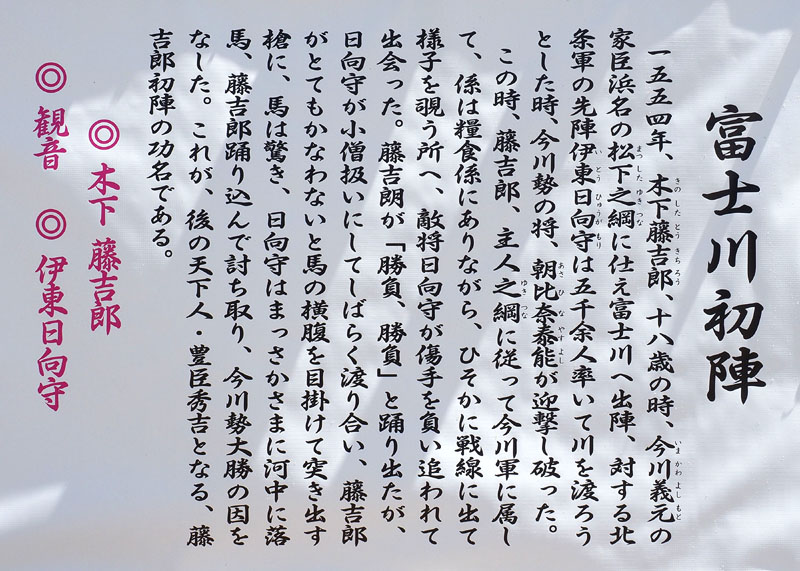 富士川初陣
一五五四年、木下藤吉郎、十八歳の時、今川義元の
きの した とう きち ろう
いま かわ よし もと
家臣浜名の松下之綱に仕え富士川へ出陣、対する北
まつ した ゆき つな
条軍の先陣伊東日向守は五千余人率いて川を渡ろう
い とう ひゅうが もり
とした時、今川勢の将、朝比奈泰能が迎撃し破った。
あさ ひ な やす よし
この時、藤吉郎、主人之綱に従って今川軍に属し
ゆき つな
て、係は糧食係にありながら、ひそかに戦線に出て
様子を覗う所へ、敵将日向守が傷手を負い追われて
出会った。藤吉朗が「勝負、勝負」と踊り出たが、
日向守が小僧扱いにしてしばらく渡り合い、藤吉郎
がとてもかなわないと馬の横腹を目掛けて突き出す
槍に、馬は驚き、日向守はまっさかさまに河中に落
馬、藤吉郎踊り込んで討ち取り、今川勢大勝の因を
なした。これが、後の天下人・豊臣秀吉となる、藤
吉郎初陣の功名である。
◎ 木下 藤吉郎
◎ 観音 ◎ 伊東日向守